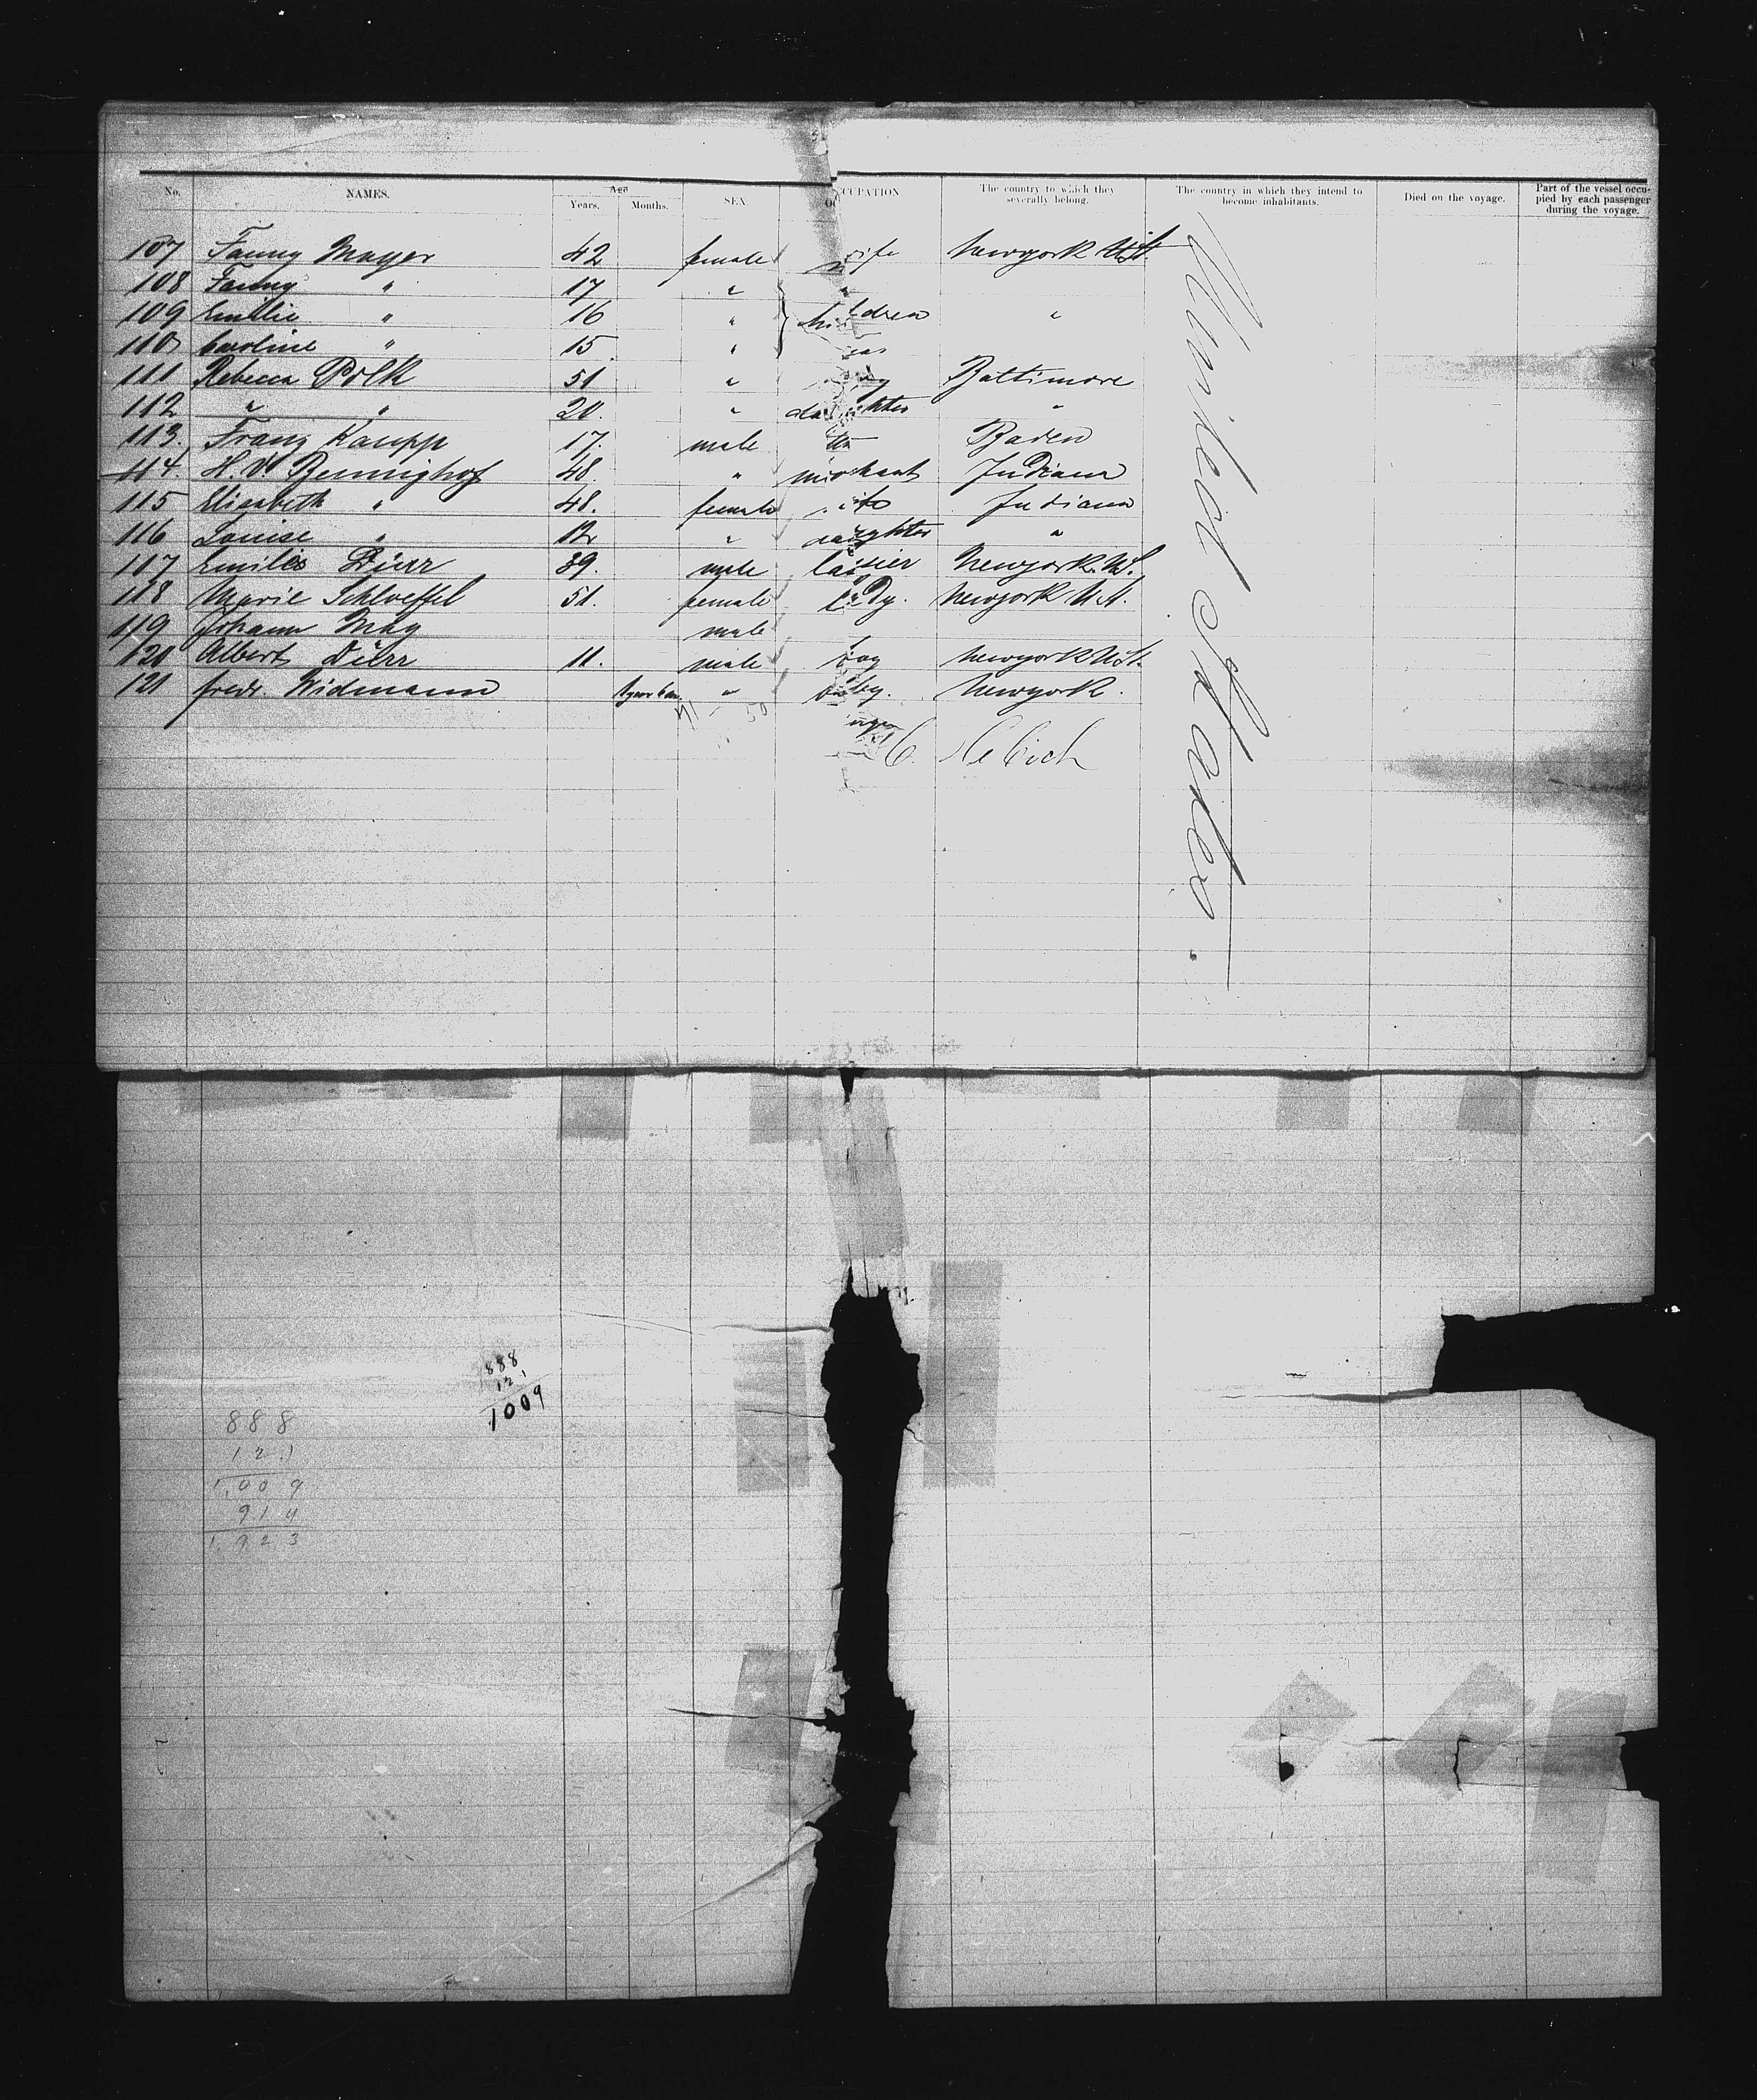 No. NAMES. Age Years. Months. SEX OCCUPATION The country to which they severally belong. The country in which they intend to become inhabitants. Died on the voyage. Part of the vessel occupied by each passenger during the voyage.
107 Fanny Mayer 42 female wife Newyork U.St.
108 Fanny " 17 "
109 Emilie " 16 " children "
110 Caroline " 15 "
111 Rebecca Polk 51 " Baltimore
112 " " 20. " daughter "
113. Franz Kaupp 17. male Baden
114. H. V. Benninghof 48. " merchant Indiana
115 Elisabeth " 48. female Indiana
116 Louise " 12 " daughter "
117 Emilie Dürr 39. male Newyork. U.S.
118 Marie Schloeffel 51. female lady. Newyork U.St.
119 Johann May male
120 Albert Dürr 11. male boy Newyork U.St.
121 fredr. Widmann 1 year 6 m. " baby. Newyork.
71 - 50
United States.
888
121
1009
888
121
1,009
914
1,923